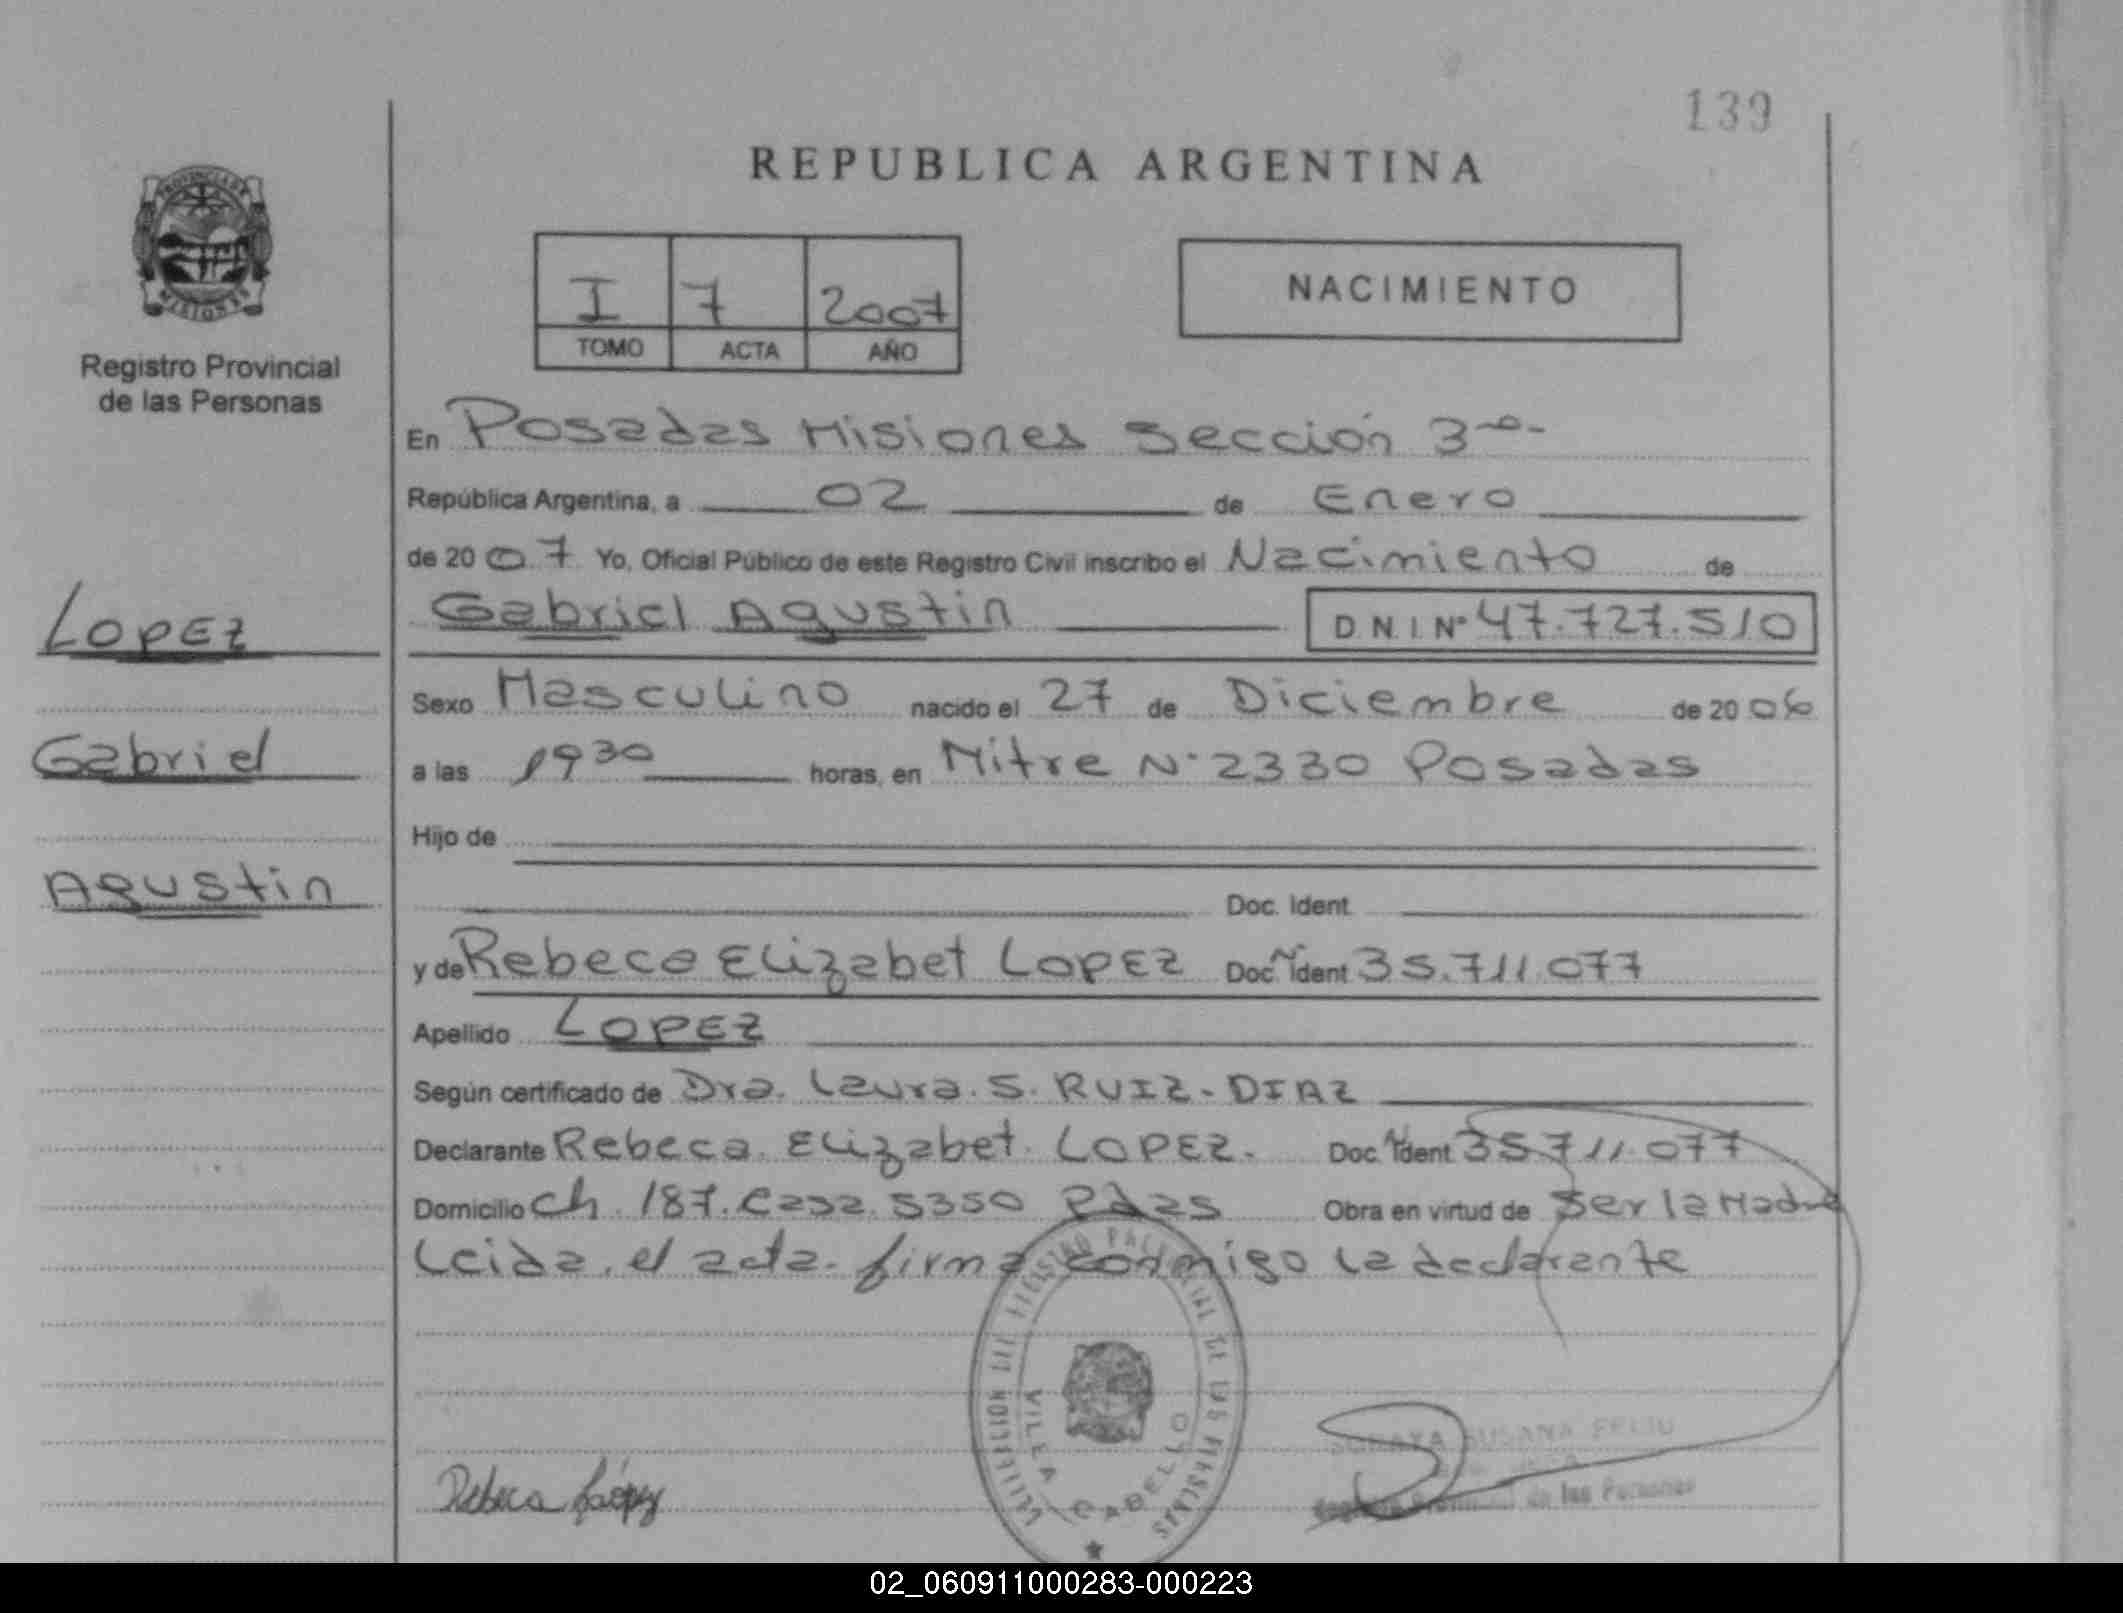 139
REPUBLICA ARGENTINA
PROVINCIA DE
MISIONES
Registro Provincial
de las Personas
I 7 2007
TOMO ACTA AÑO
NACIMIENTO
En Posadas Misiones Sección 3ra-
República Argentina, a 02 de Enero
de 2007 Yo, Oficial Público de este Registro Civil inscribo el Nacimiento de
LOPEZ
Gabriel Agustin D.N.I. Nº 47.727.510
Sexo Masculino nacido el 27 de Diciembre de 2006
Gabriel
a las 19 30 horas, en Mitre Nº 2330 Posadas
Hijo de
Agustin
Doc. Ident.
y de Rebeca Elizabet LOPEZ Doc. Ident 35.711.077
Apellido LOPEZ
Según certificado de Dra. Laura. S. RUIZ-DIAZ
Declarante Rebeca. Elizabet. LOPEZ. Doc. Ident 35711.077
Domicilio Ch. 187. Casa. 5350 Pdas Obra en virtud de Ser la Madre
Leida. el acta. firma conmigo la declarante
DELEGACION DEL REGISTRO PROVINCIAL DE LAS PERSONAS
VILLA CABELLO
SORAYA SUSANA FELIU
de las Personas
Rebeca López
02_060911000283-000223